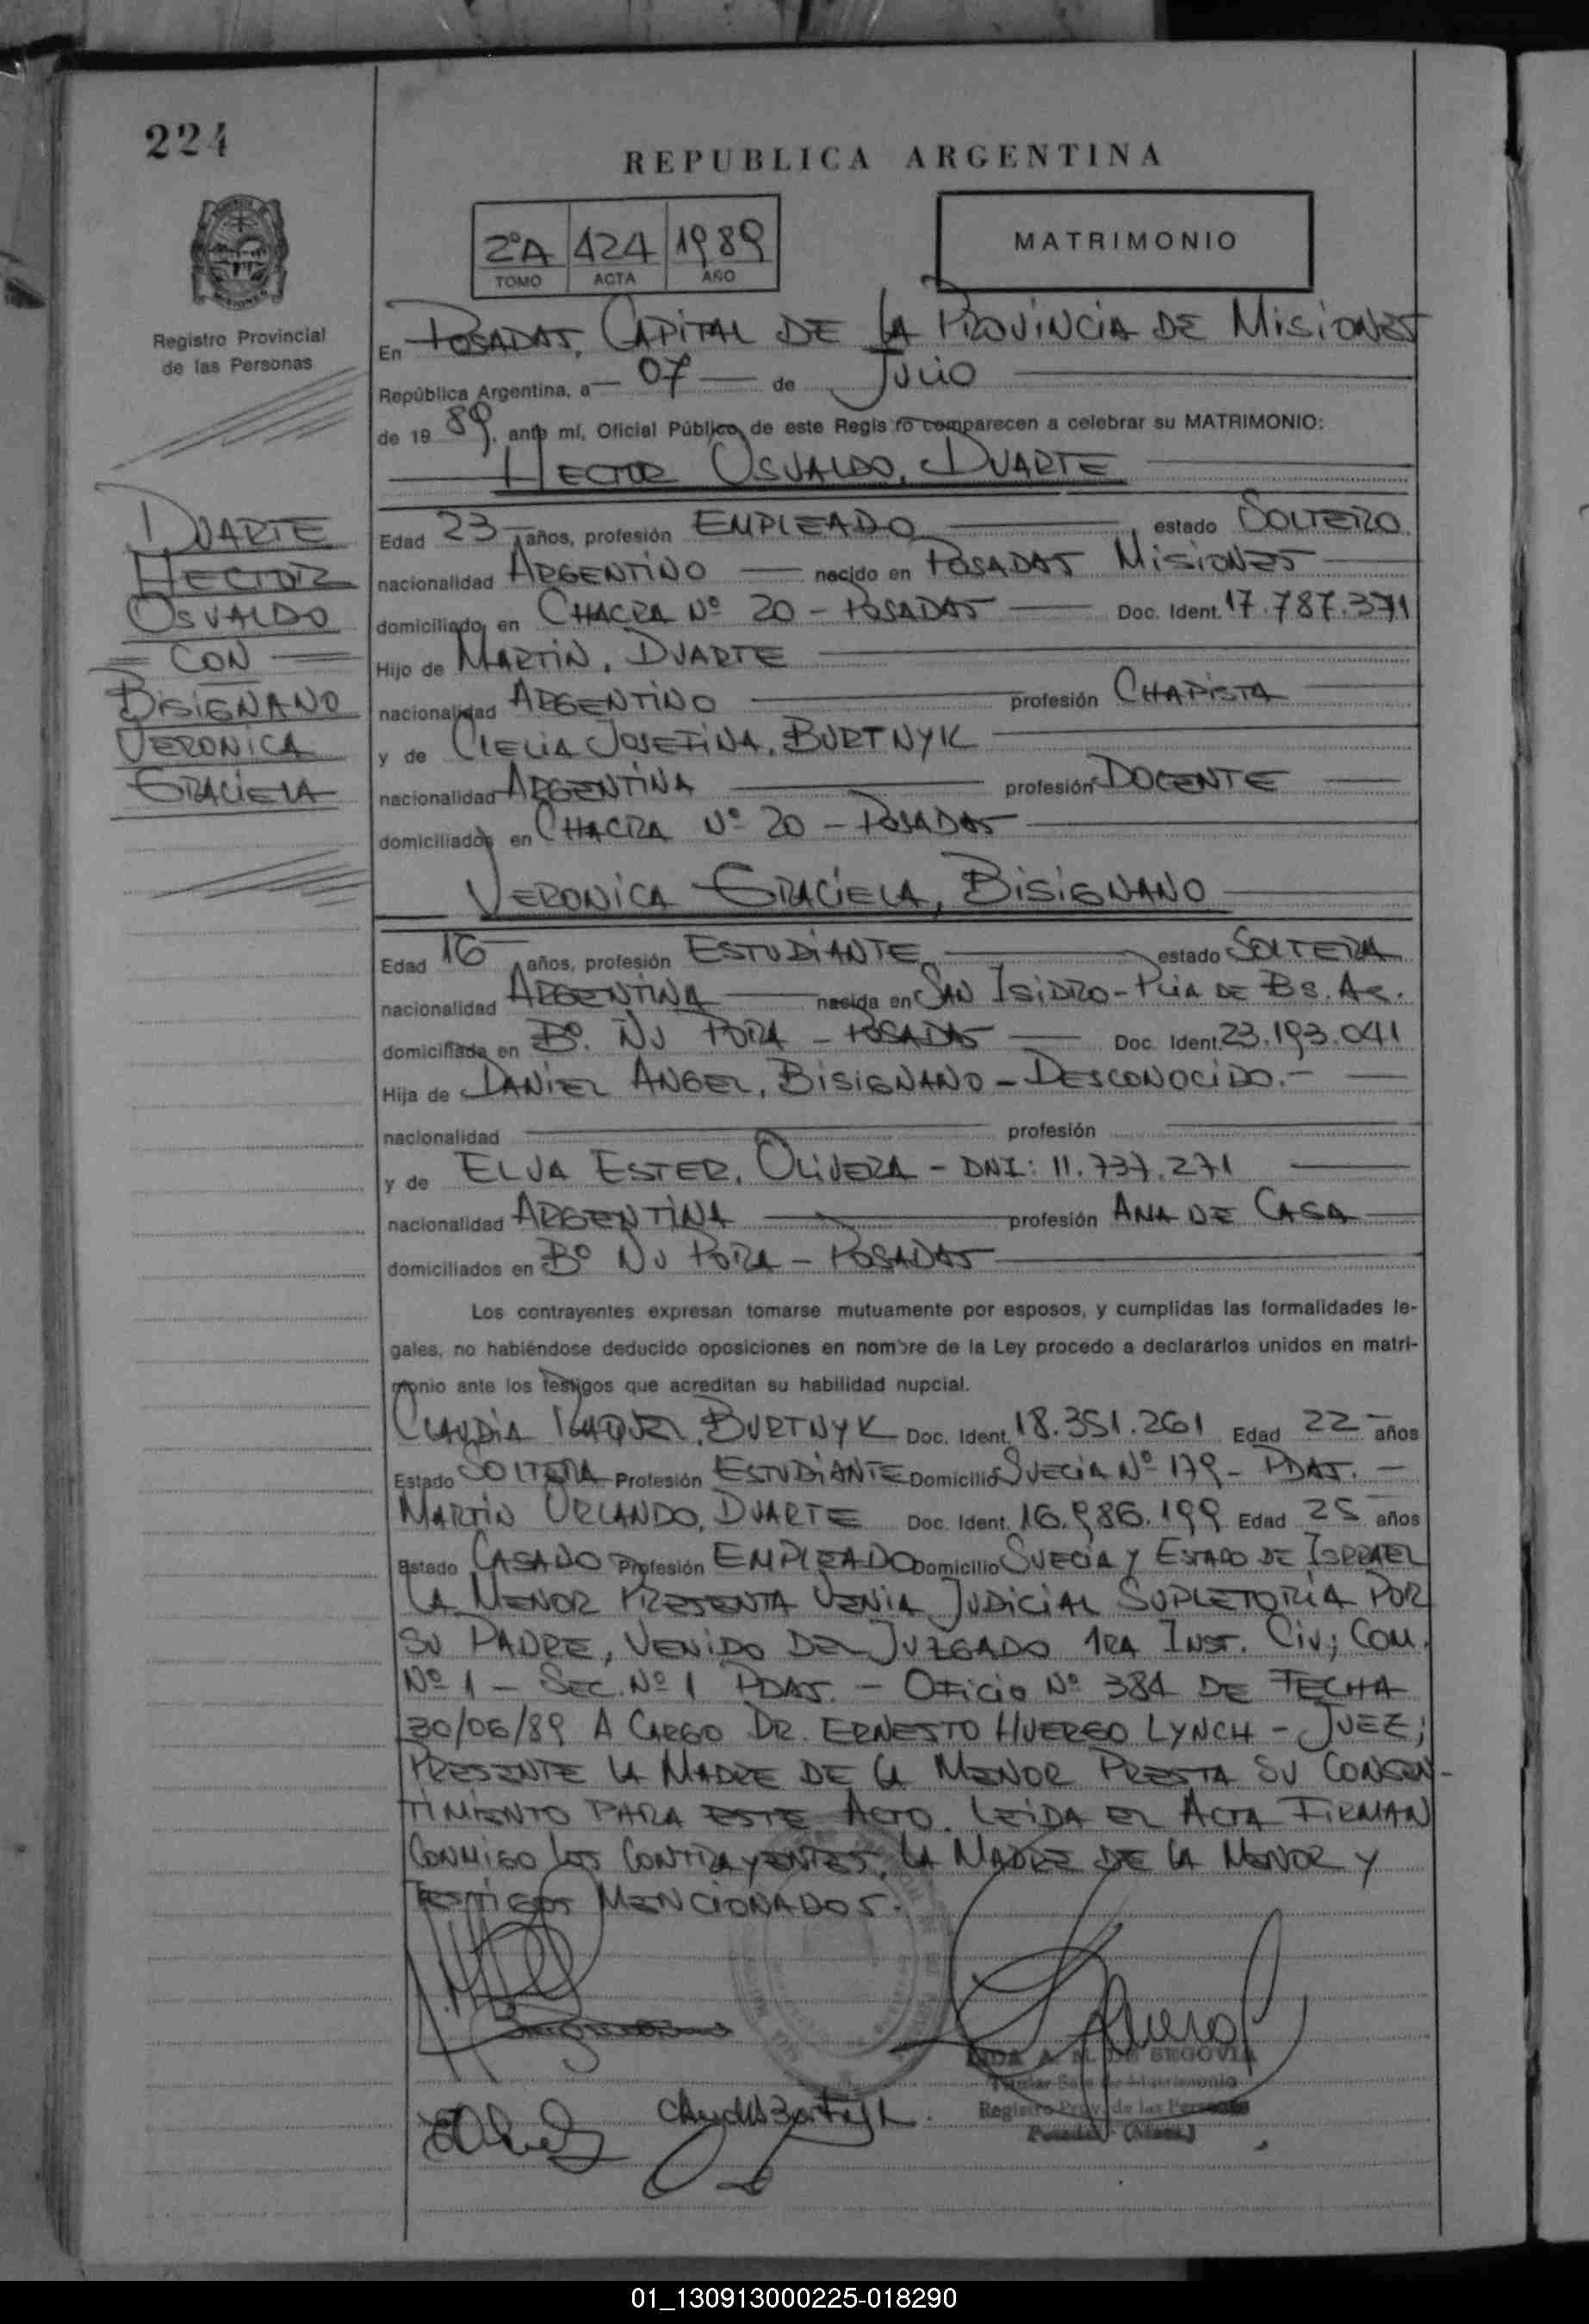 224
REPUBLICA ARGENTINA
2ºA 424 1989
TOMO ACTA AÑO
MATRIMONIO
Registro Provincial
de las Personas
En POSADAS, CAPITAL DE LA PROVINCIA DE MISIONES
República Argentina, a 07 de JULIO
de 19 89, ante mí, Oficial Público de este Registro comparecen a celebrar su MATRIMONIO:
HECTOR OSVALDO, DUARTE
DUARTE
HECTOR
OSVALDO
CON
BISIGNANO
VERONICA
GRACIELA
Edad 23 años, profesión EMPLEADO estado SOLTERO
nacionalidad ARGENTINO nacido en POSADAS MISIONES
domiciliado en CHACRA Nº 20 - POSADAS Doc. Ident. 17.787.371
Hijo de MARTIN, DUARTE
nacionalidad ARGENTINO profesión CHAPISTA
y de CLELIA JOSEFINA, BURTNYK
nacionalidad ARGENTINA profesión DOCENTE
domiciliados en CHACRA Nº 20 - POSADAS
VERONICA GRACIELA, BISIGNANO
Edad 16 años, profesión ESTUDIANTE estado SOLTERA
nacionalidad ARGENTINA nacida en SAN ISIDRO - PCIA DE BS. AS.
domiciliada en Bº. ÑU PORA - POSADAS Doc. Ident. 23.193.041
Hija de DANIEL ANGEL, BISIGNANO - DESCONOCIDO.-
nacionalidad profesión
y de ELVA ESTER, OLIVERA - DNI: 11.737.271
nacionalidad ARGENTINA profesión AMA DE CASA
domiciliados en Bº ÑU PORA - POSADAS
Los contrayentes expresan tomarse mutuamente por esposos, y cumplidas las formalidades le-
gales, no habiéndose deducido oposiciones en nombre de la Ley procedo a declararlos unidos en matri-
monio ante los testigos que acreditan su habilidad nupcial.
CLAUDIA RAQUEL, BURTNYK Doc. Ident. 18.351.261 Edad 22 años
Estado SOLTERA Profesión ESTUDIANTE Domicilio SUECIA Nº 179 - PDAS. -
MARTIN ORLANDO, DUARTE Doc. Ident. 16.986.199 Edad 25 años
Estado CASADO Profesión EMPLEADO Domicilio SUECIA Y ESTADO DE ISRRAEL
LA MENOR PRESENTA VENIA JUDICIAL SUPLETORIA POR
SU PADRE, VENIDO DEL JUZGADO 1RA INST. CIV; COM.
Nº 1 - SEC. Nº 1 PDAS. - OFICIO Nº 384 DE FECHA
30/06/89 A CARGO DR. ERNESTO HUERGO LYNCH - JUEZ;
PRESENTE LA MADRE DE LA MENOR PRESTA SU CONSEN-
TIMIENTO PARA ESTE ACTO. LEIDA EL ACTA FIRMAN
CONMIGO LOS CONTRAYENTES, LA MADRE DE LA MENOR Y
TESTIGOS MENCIONADOS.
A. M. DE SEGOVIA
Titular Sala de Matrimonio
Registro Prov. de las Personas
Posadas - (Mnes.)
01_130913000225-018290